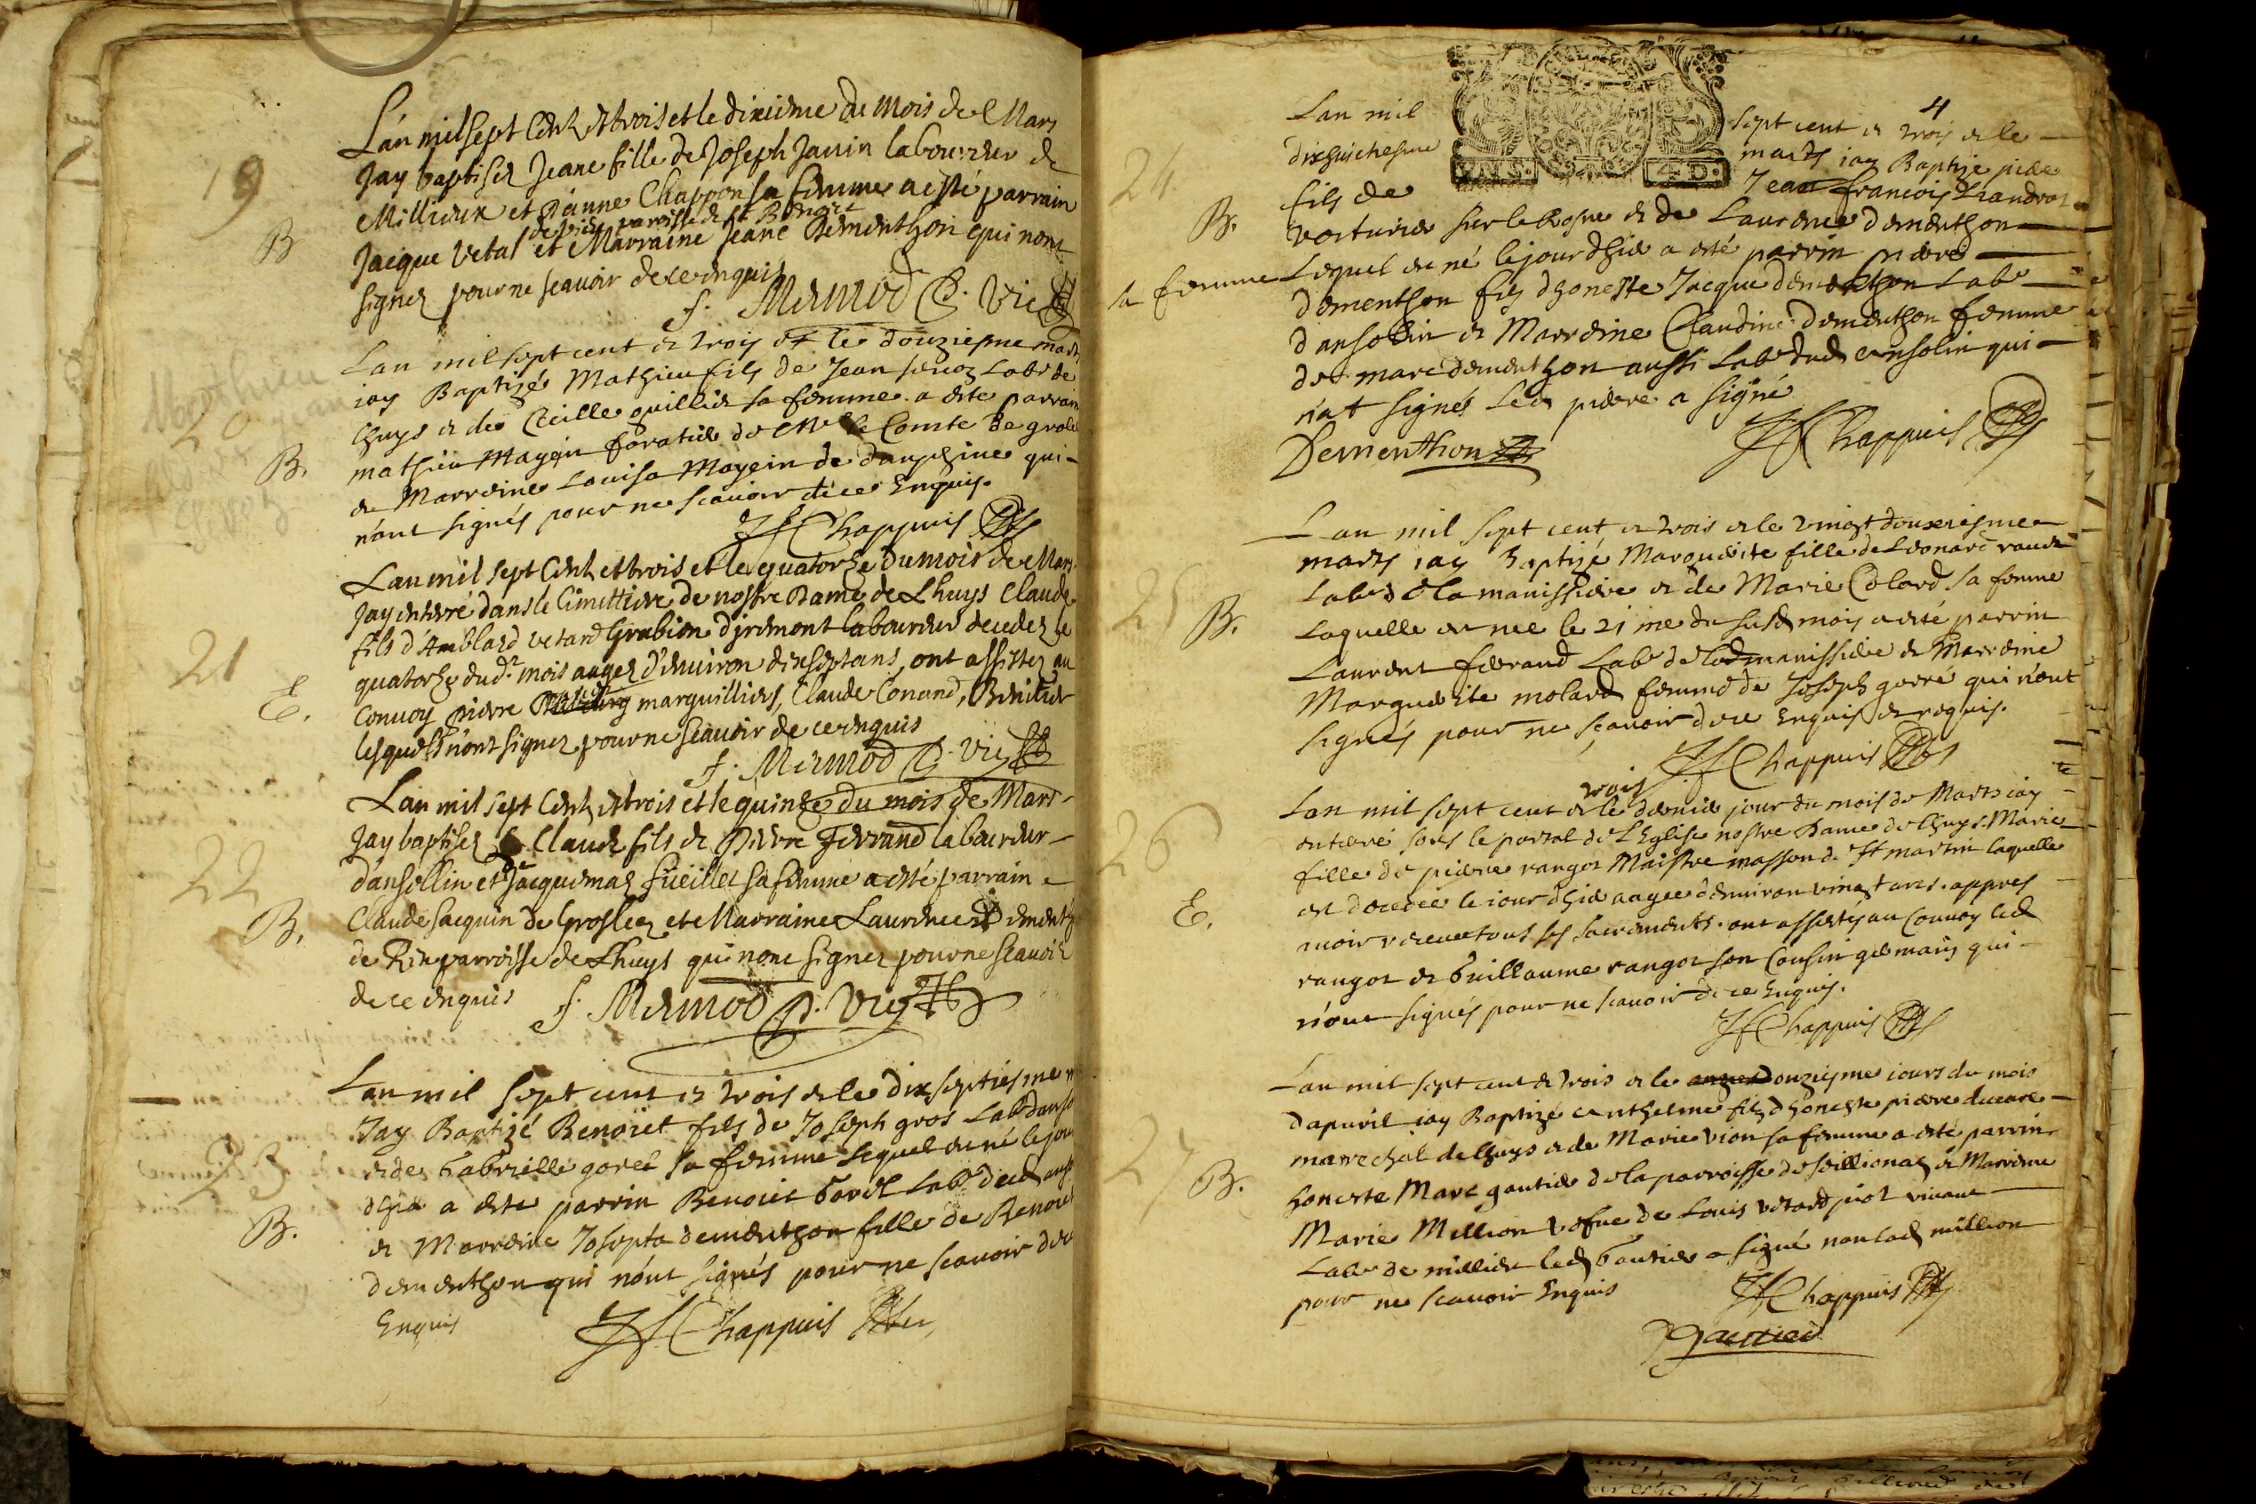 19
B
L'an mil sept Cent et trois et le dixieme du Mois de Mars
Jay baptisez Jeane fille de Joseph Janin laboureur de
Millieux et Dianne Chappon sa femme a esté parrain
paroisse de St Benoict
Jacque Vetal et Marraine Jeane Dementhon qui nont
signez pour ne scavoir de ce enquis
f. Mermod p. Vic
20
B.
Lan mil sept cent et trois et le douziesme mars
iay Baptizé Mathieu fils de Jean Labr de
Lhuys et de Cecille quillier sa femme a esté parrain
mathieu Mayein de Mr le Comte de grolee
et Marreine Louisa Mayein de dauphiné qui
n'ont signés pour ne scavoir de ce Enquis.
JfChappuis
21
E.
Lan mil sept Cent et trois et le quatorze du mois de Mars
Jay enterré dans le Cimettiere de nostre Dame de Lhuys Claude
fils d'Amblard vetard Grabion d'jremont laboureur decedez le
quatorze dud.t mois aagez d'environ dixsept ans, ont assistez au
Convoy pierre marguilliers, Claude Conand, Benitier
lesquels n'ont signez pour ne scavoir de ce enquis
f. Mermod p. Vic
22
B.
Lan mil sept Cent et trois et le quinze du mois de Mars
Jay baptisez Claude fils de Pierre Ferrand laboureur
dansollin et Jacquemaz fueillet sa femme a esté parrain
Claude Jacquin de Groslee et Marraine Laurence dementh
de Rix parroisse de Lhuys qui nont signez pour ne scavoir
de ce enquis f. Mermod p. Vic
23
B.
Lan mil sept cent et trois et le dix septiesme m
Jay Baptizé Benoict fils de Joseph gros Labr danso
et de Gabrielle goret sa femme lequel est né le jou
dhier a esté parrin Benoict Goret Labr dud ans
et Marreine Josepta dementhon fille de Benoict
dementhon qui n'ont signés pour ne scavoir de ce
Enquis JfChappuis
4
24
B.
Lan mil sept cent et trois et le
dixhuictiesme mars iay Baptizé piere
fils de Jean francois
voiturier sur le Rosne et de Laurence dementhon
sa femme Lequel est né le jour dhier a esté parrin pierre
dementhon fils dhoneste Jacque dementhon Labr
dansollin et Marreine Claudine dementhon femme
de marc dementhon aussi Labr dud ansolin qui
n'a signés Led pierre a signé
Dementhon JfChappuis
25
B.
Lan mil sept cent et trois et le vingt douxiesme
mars iay Baptizé Marguerite fille de Leonard
Labr de la manissiere et de Marie Colard sa femme
Laquelle est nee le 21 me du susd mois a esté parrin
Laurent ferrand Labr de lad manissiere et Marreine
Marguerite molard femme de Joseph gorré qui n'ont
signés pour ne scavoir de ce Enquis et requis.
JfChappuis
26
E.
trois
Lan mil sept cent et le dernier jour du mois de Mars iay
enterré sous le portal de L'Eglise nostre Dame de Lhuys Marie
fille de pierre rangot Maistre masson de St martin laquelle
est decedée le iour dhier aagee denviron vingt ans. appres
avoir receu tous ses sacrements. ont assistés au Convoy led
rangot et Guillaume rangot son Cousin germain qui
n'ont signés pour ne scavoir de ce Enquis.
JfChappuis
27
B.
Lan mil sept cent et trois et le onziesme iours du mois
dapuril iay Baptizé anthelme fils dhoneste pierre
marechal de Lhuys et de Marie vion sa femme a esté parrin
honeste Marc gautier de la parroisse de seillionaz et Marreine
Marie Million vefue de Louis vetard piot vivant
Labr de millieu led Gautier a signé non lad million
pour ne scavoir Enquis JfChappuis
gautier